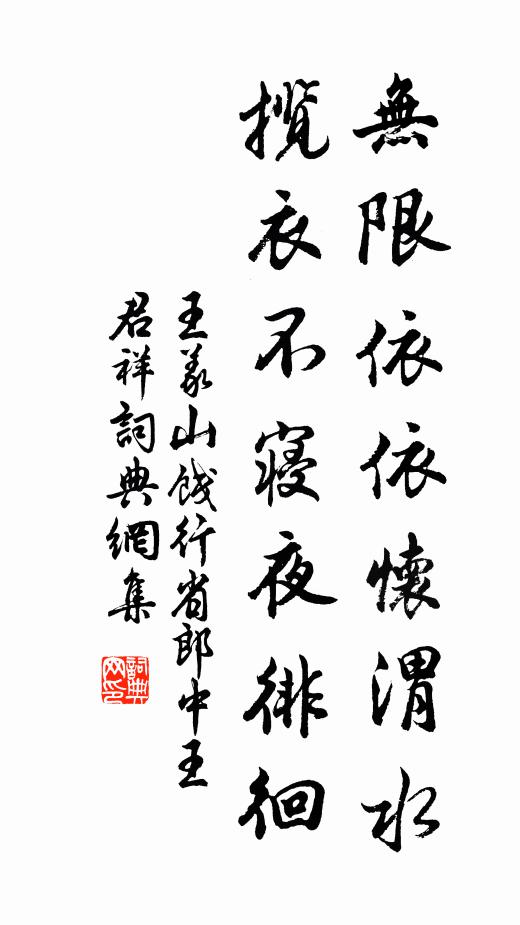 無限依依懷渭水
攬衣不寝夜徘徊
王義山餞行省郎中王
君祥詞典網集
詞典网印